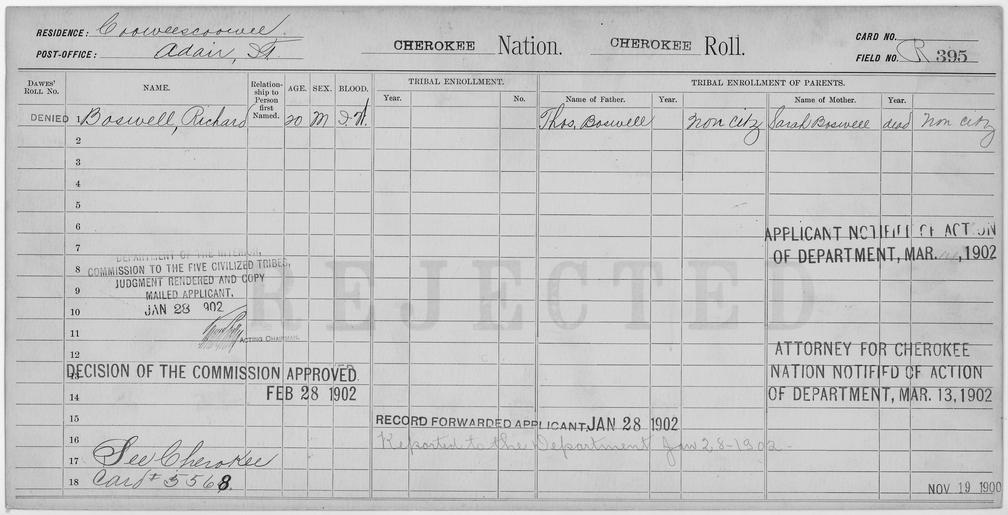 RESIDENCE: Cooweescoowee
POST-OFFICE: Adair, I.T.
CHEROKEE Nation. CHEROKEE Roll.
CARD NO.
FIELD NO. R 395
DAWES' ROLL NO.
NAME.
Relationship to Person first Named.
AGE.
SEX.
BLOOD.
TRIBAL ENROLLMENT.
Year.
No.
TRIBAL ENROLLMENT OF PARENTS.
Name of Father.
Year.
Name of Mother.
Year.
DENIED 1 Boswell, Richard 20 M I.W. Thos. Boswell Non Citz Sarah Boswell dead Non Citz
2
3
4
5
6
APPLICANT NOTIFIED OF ACTION
OF DEPARTMENT, MAR. , 1902
7
DEPARTMENT OF THE INTERIOR,
8
COMMISSION TO THE FIVE CIVILIZED TRIBES,
JUDGMENT RENDERED AND COPY
9
MAILED APPLICANT,
10
JAN 28 902
REJECTED
11
ACTING CHAIRMAN.
12
ATTORNEY FOR CHEROKEE
13
NATION NOTIFIED OF ACTION
DECISION OF THE COMMISSION APPROVED
14
FEB 28 1902
OF DEPARTMENT, MAR. 13, 1902
15
RECORD FORWARDED APPLICANT, JAN 28 1902
16
Reported to the Department Jan 28-1902-
17 See Cherokee
18 Card # 5568.
NOV 19 1900